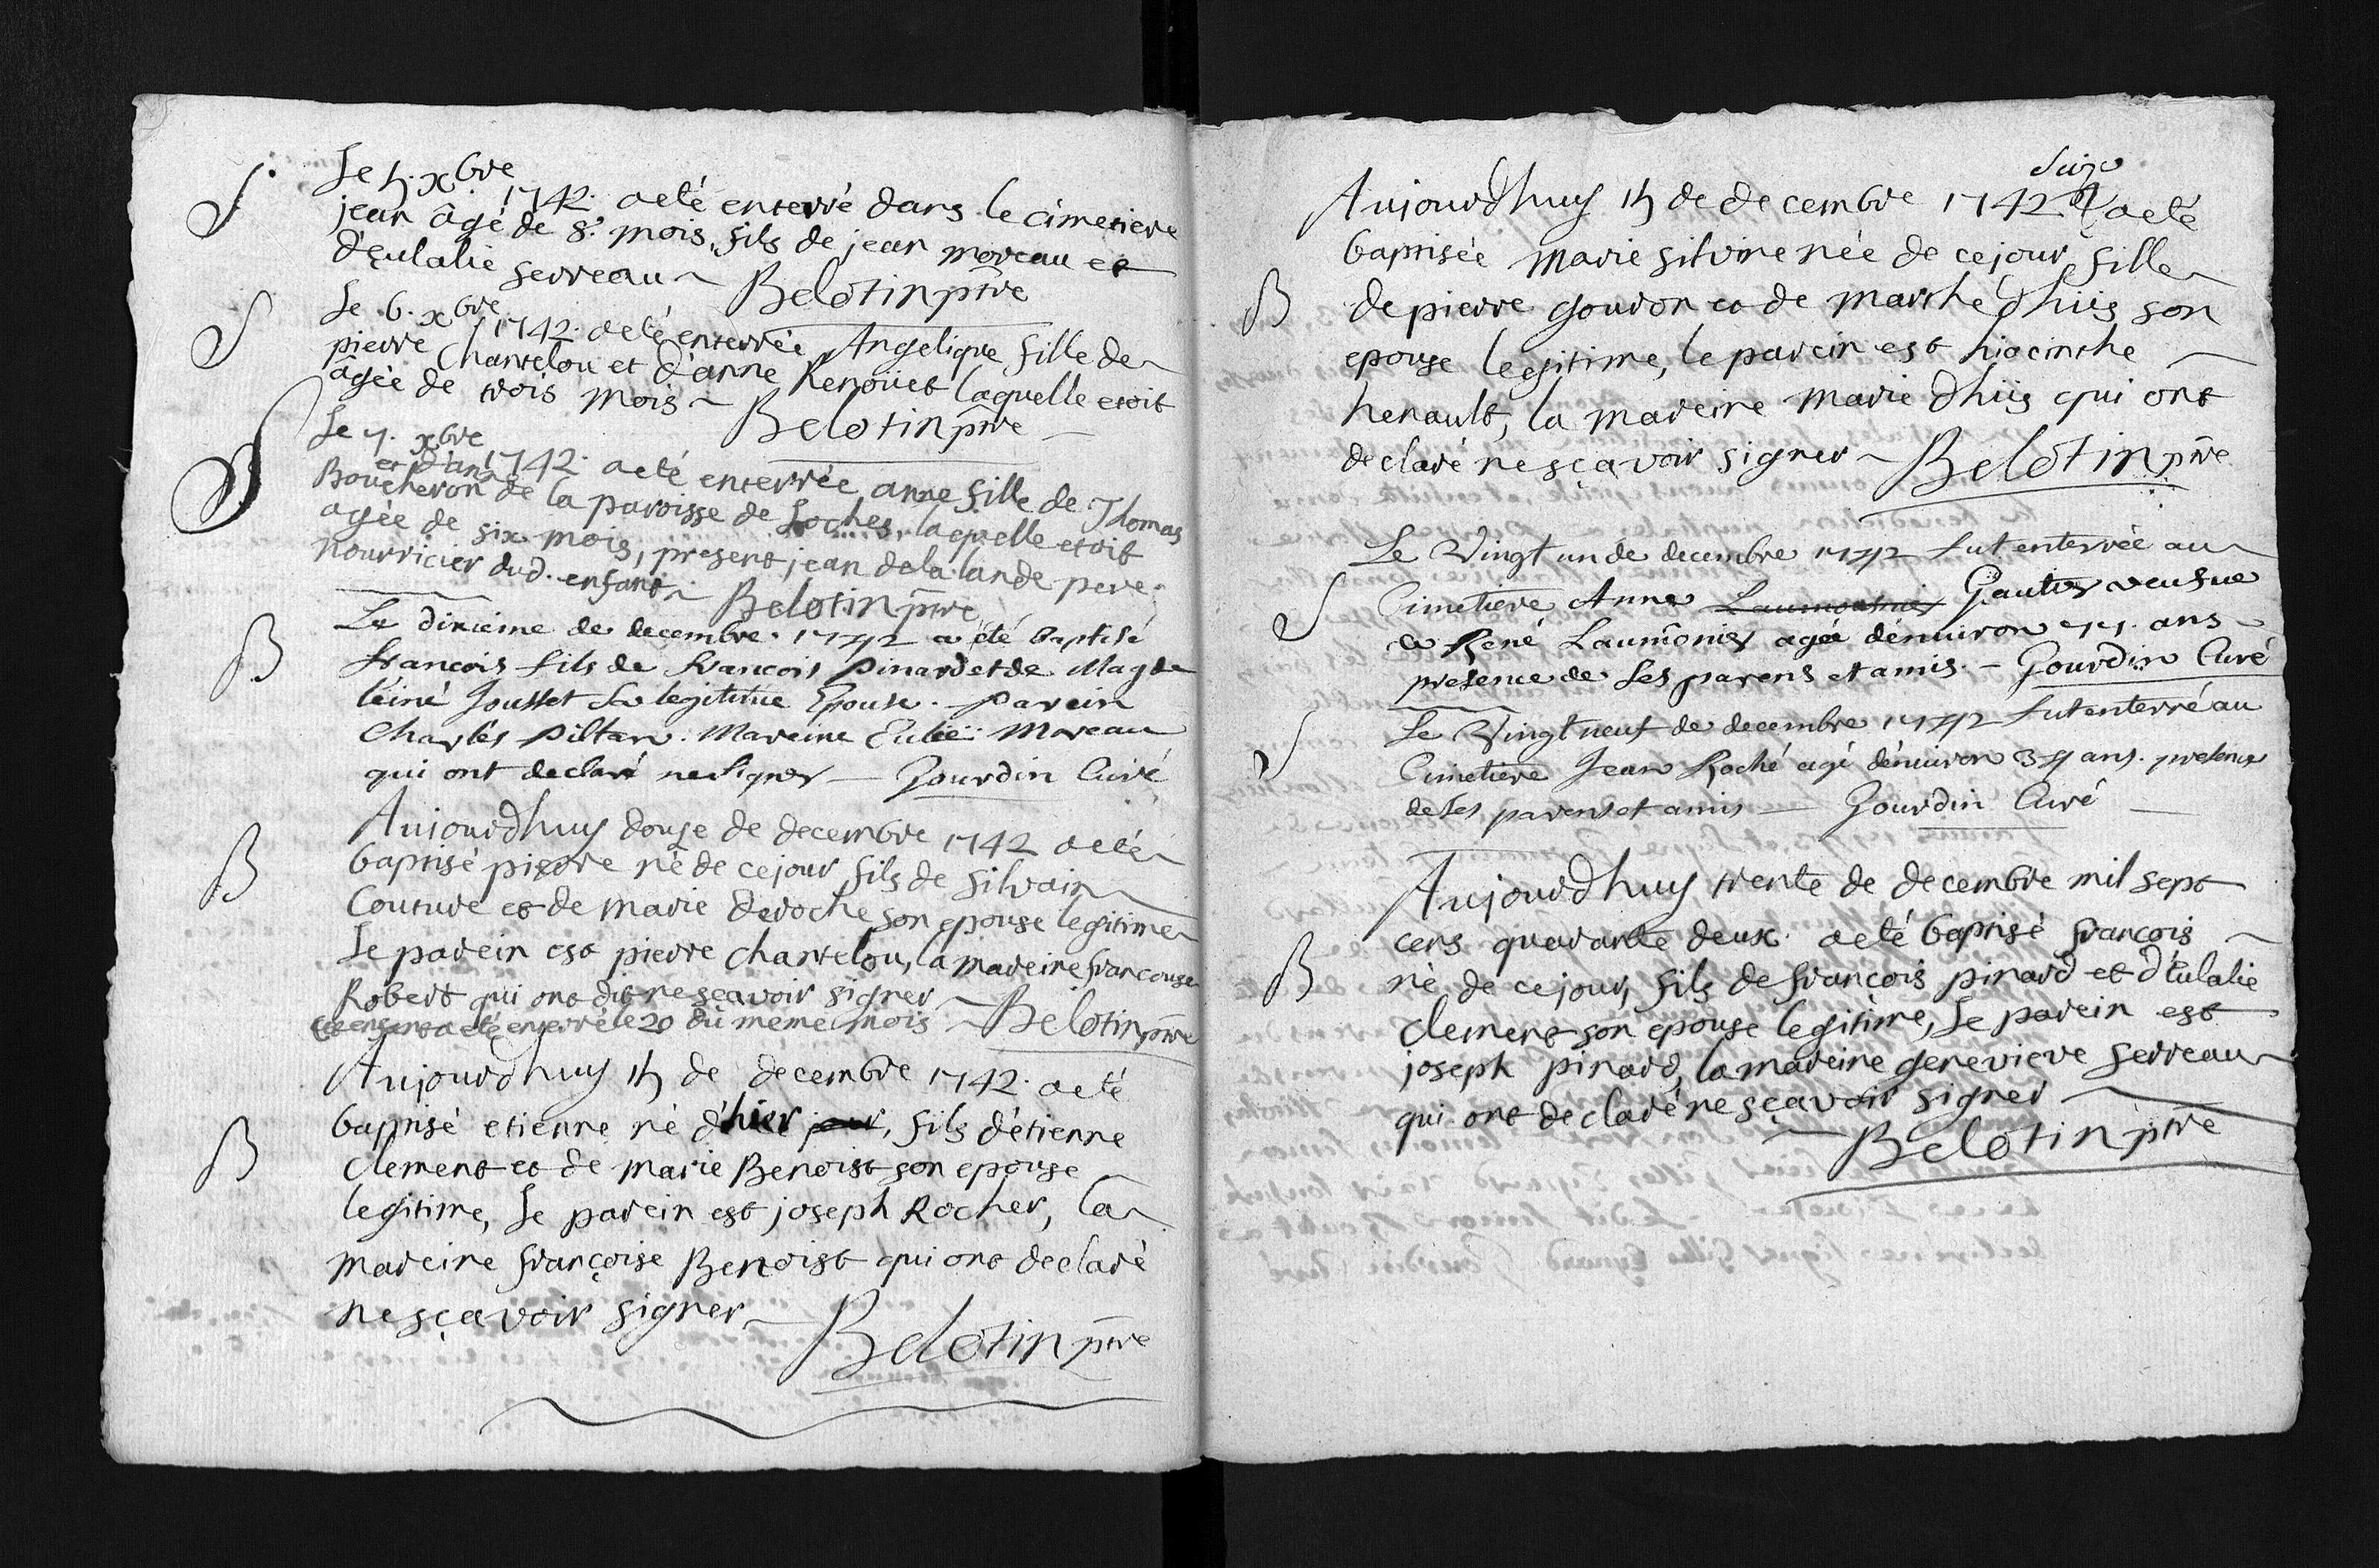 S
Le 5. xbre 1742. a eté enterré dans le cimetiere
jean âgé de 8. mois, fils de jean moreau et
d'eulalie serreau Belotin ptre
S
Le 6. xbre 1742. a eté enterrée Angelique fille de
pierre Chantelou et d'anne Renoüet laquelle etoit
âgée de trois mois Belotin ptre
S
Le 7. xbre 1742. a eté enterrée anne fille de Thomas
et d'an
Boucheron de la paroisse de Loches, laquelle etoit
agée de six mois, present jean delalande pere
nourricier dud. enfant Belotin ptre
B
Le dixieme de decembre 1742 a été baptisé
francois fils de francois Pinard et de Magde
leine Jousset sa legitime Epouse. Parein
Charles Piltan. Mareine Eulie Moreau
qui ont declaré ne signer Gourdin Curé
B
Aujourdhuy douze de decembre 1742 a eté
baptisé pierre né de ce jour fils de silvain
Couture et de marie deroche son epouse legitime
Le parein est pierre chantelou, la mareine francouse
Robert qui ont dit ne sçavoir signer Belotin ptre
cet enfant a eté enterré le 20 du meme mois
B
Aujourdhuy 15 de decembre 1742. a eté
baptisé etienne né d'hier jour, fils d'étienne
Clement et de marie Benoist son epouse
legitime, Le parein est joseph Rocher, la
mareine françoise Benoist qui ont declaré
ne sçavoir signer Belotin ptre
seize
Aujourdhuy 15 de decembre 1742 a eté
B
baptisée marie silvine née de ce jour fille
de pierre gouron et de marthe dhüs son
epouse legitime, le parein est hiacinthe
henault, la mareine marie dhüs qui ont
declaré ne sçavoir signer Belotin ptre
S
Le Vingt un de decembre 1742 fut enterrée au
Cimetiere Anne Laumosnier Gautier veufue
de René Laumônier agée dénuiron 77. ans
presence de ses parens et amis. Gourdin Curé
S
Le Vingt neuf de decembre 1742 fut enterré au
Cimetiere Jean Roché agé dénuiron 34 ans. presence
de ses parens et amis Gourdin Curé
B
Aujourdhuy trente de decembre mil sept
cens quarante deux a eté baptisé françois
né de ce jour, fils de françois pinard et d'Eulalie
Clement son epouse legitime, Le parein est
joseph pinard, la mareine genevieve serreau
qui ont declaré ne sçavoir signer
Belotin ptre